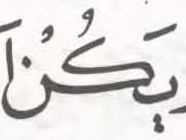 يَكُنْ